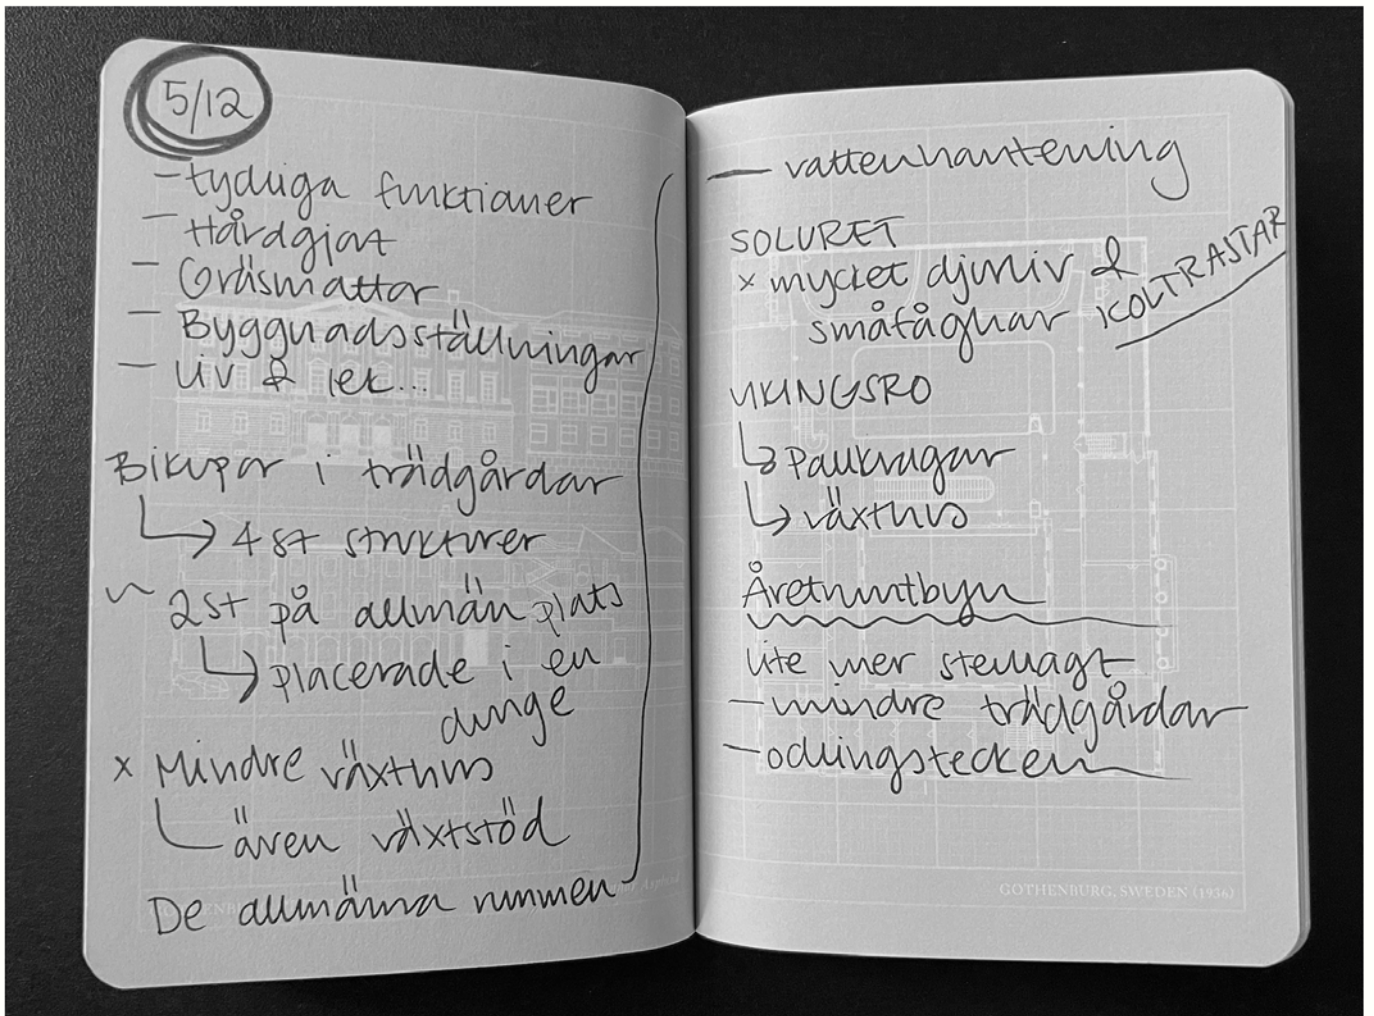 5/12
- tydliga funktioner
- Hårdgjort
- Gräsmattor
- Byggnadsställningar
- Liv & lek...
Bikupor i trädgårdar
4 st strukturer
2st på allmän plats
placerade i en
dunge
x Mindre växthus
även växtstöd
De allmänna rummen
- vattenhantering
SOLURET
x mycket djurliv &
småfåglar KOLTRASTAR
VIKINGSRO
Pallkragar
växthus
Lite mer
- mindre trädgårdar
- odlingstecken
GOTHENBURG, SWEDEN (1936)